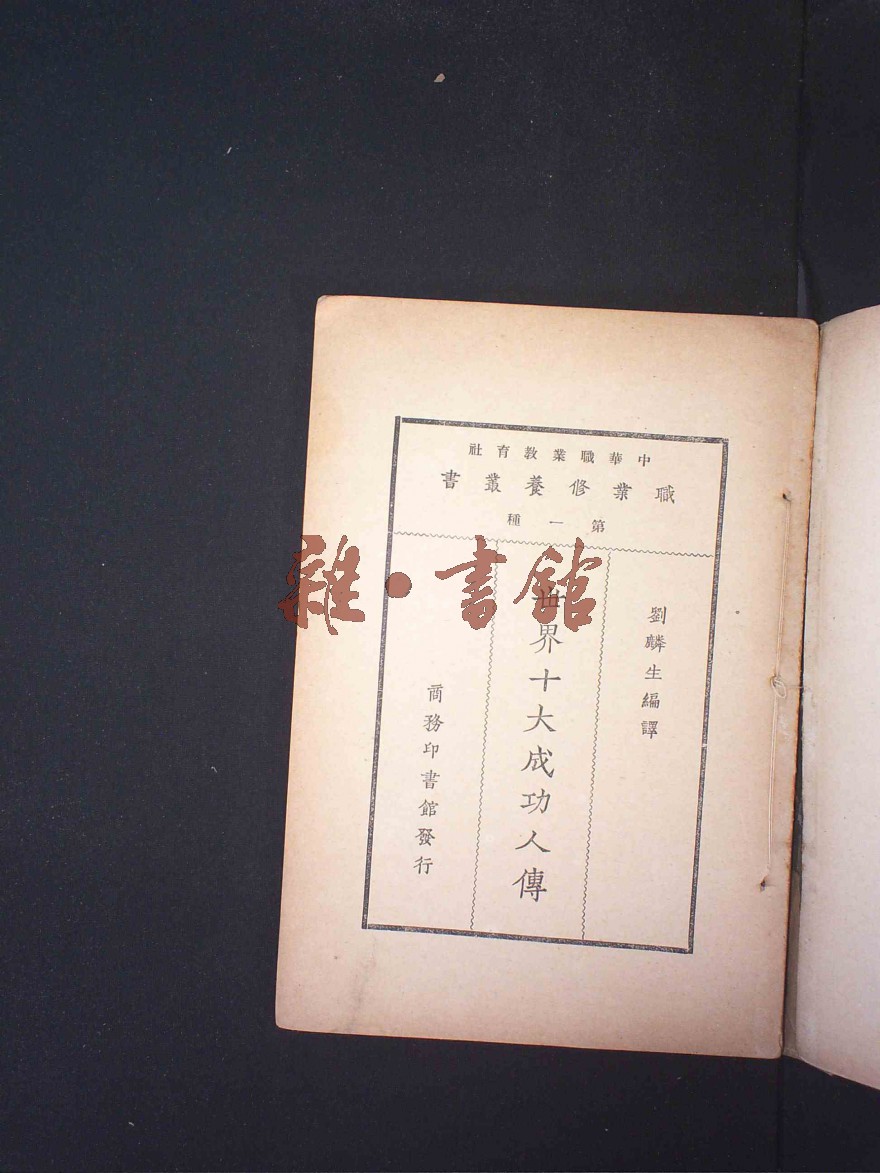 中華職業教育社
職業修養叢書
第一種
劉麟生編譯
世界十大成功人傳
商務印書館發行
雜·書館